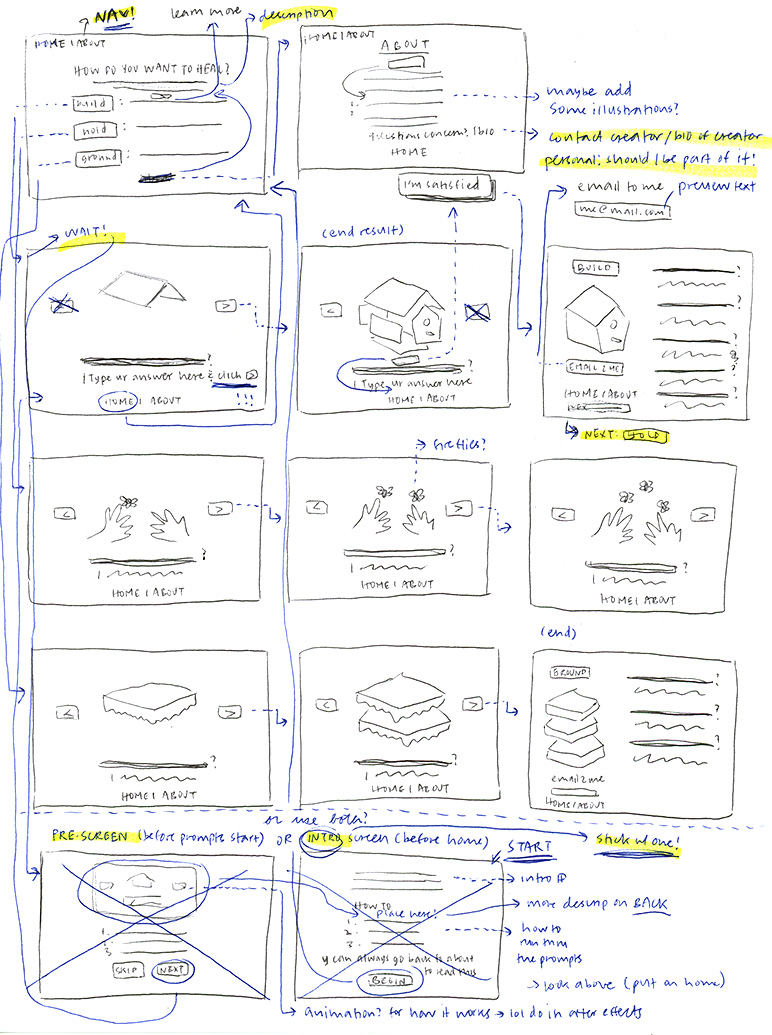 NAV!
learn more
description
HOME | ABOUT
HOW DO YOU WANT TO HEAL?
build :
hold :
ground :
HOME | ABOUT
ABOUT
questions concern? | bio
HOME
maybe add
some illustrations?
contact creator/bio of creator
personal; should I be part of it!
I'm satisfied
email to me
preview text
me@mail.com
WAIT!
>
?
| Type ur answer here & click >
HOME | ABOUT
!!!
(end result)
<
?
| Type ur answer here
HOME | ABOUT
BUILD
?
?
?
?
?
EMAIL 2 ME
HOME | ABOUT
NEXT
NEXT: HOLD
<
>
?
|
HOME | ABOUT
fireflies?
<
>
?
|
HOME | ABOUT
<
>
?
HOME | ABOUT
<
>
?
|
HOME | ABOUT
<
>
?
|
HOME | ABOUT
(end)
GROUND
?
?
?
email 2 me
HOME | ABOUT
or use both?
PRE-SCREEN (before prompts start) OR INTRO screen (before home)
stick w/ one!
START
1.
2.
3.
SKIP
NEXT
HOW TO
place here!
1.
2.
3.
y can always go back to about
to read this
BEGIN
intro P
more descrip on BACK
how to
run thru
the prompts
→ look above (put on home)
→ animation? for how it works → lol do in after effects